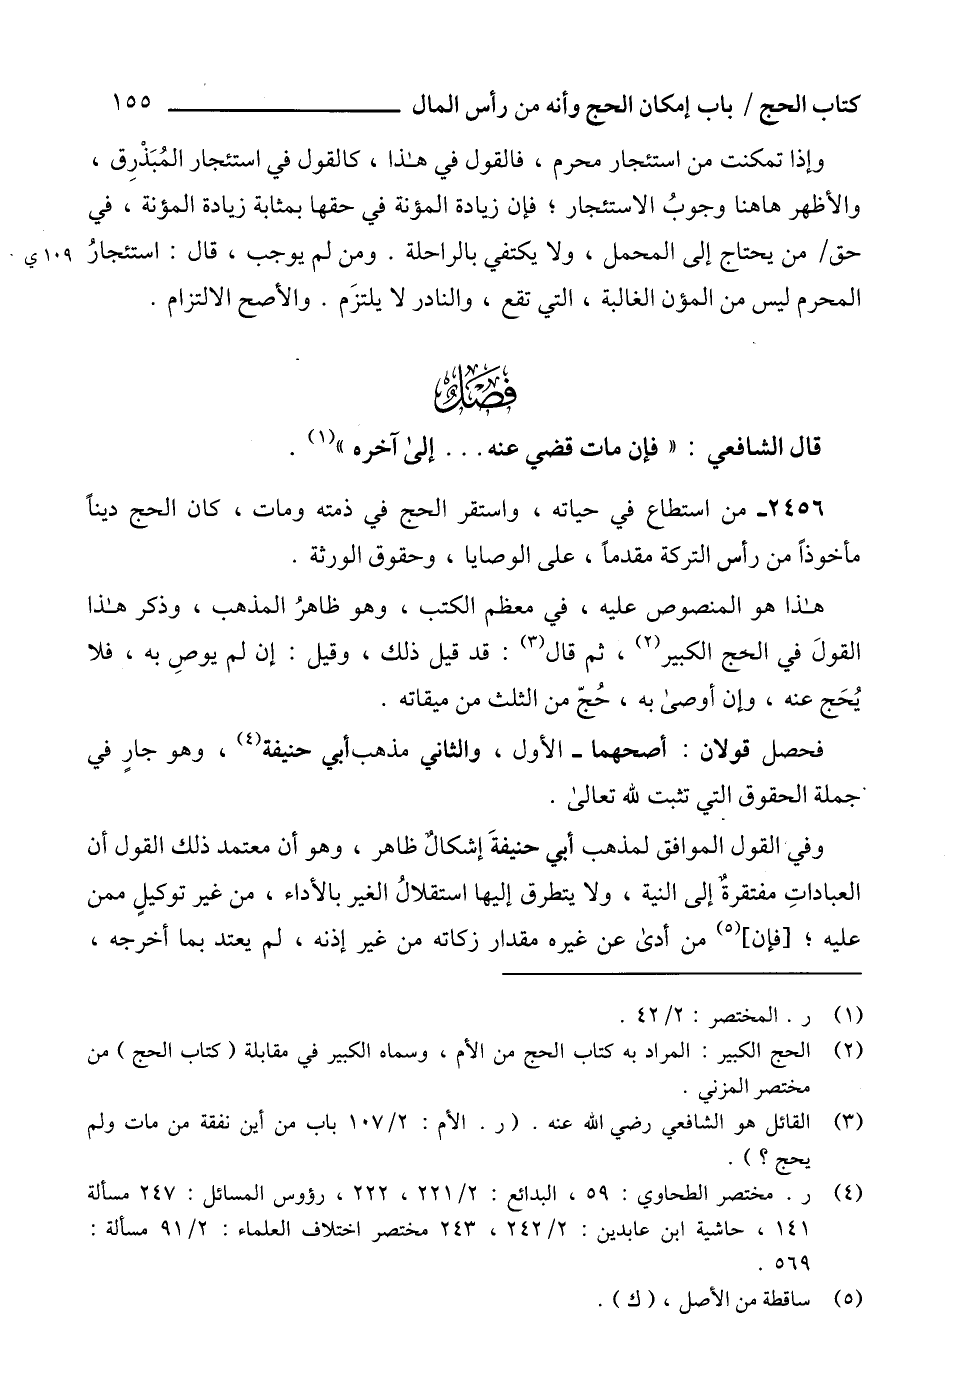 كتاب الحج / باب إمكان الحج وأنه من رأس المال ــــــــــــــــــــ ١٥٥
وإذا تمكنت من استئجار محرم ، فالقول في هـٰذا ، كالقول في استئجار المُبَذْرِق ،
والأظهر هاهنا وجوبُ الاستئجار ؛ فإن زيادة المؤنة في حقها بمثابة زيادة المؤنة ، في
حق/ من يحتاج إلى المحمل ، ولا يكتفي بالراحلة . ومن لم يوجب ، قال : استئجارُ ١٠٩ ي
المحرم ليس من المؤن الغالبة ، التي تقع ، والنادر لا يلتزَم . والأصح الالتزام .
فصل
قال الشافعي : « فإن مات قضي عنه . . . إلىٰ آخره »(١) .
٢٤٥٦ـ من استطاع في حياته ، واستقر الحج في ذمته ومات ، كان الحج ديناً
مأخوذاً من رأس التركة مقدماً ، على الوصايا ، وحقوق الورثة .
هـٰذا هو المنصوص عليه ، في معظم الكتب ، وهو ظاهرُ المذهب ، وذكر هـٰذا
القولَ في الحج الكبير(٢) ، ثم قال(٣) : قد قيل ذلك ، وقيل : إن لم يوصِ به ، فلا
يُحَج عنه ، وإن أوصىٰ به ، حُجّ من الثلث من ميقاته .
فحصل قولان : أصحهما ـ الأول ، والثاني مذهب أبي حنيفة(٤) ، وهو جارٍ في
جملة الحقوق التي تثبت لله تعالىٰ .
وفي القول الموافق لمذهب أبي حنيفةَ إشكالٌ ظاهر ، وهو أن معتمد ذلك القول أن
العباداتِ مفتقرةٌ إلى النية ، ولا يتطرق إليها استقلالُ الغير بالأداء ، من غير توكيلٍ ممن
عليه ؛ [فإن](٥) من أدىٰ عن غيره مقدار زكاته من غير إذنه ، لم يعتد بما أخرجه ،
(١) ر . المختصر : ٤٢/٢ .
(٢) الحج الكبير : المراد به كتاب الحج من الأم ، وسماه الكبير في مقابلة ( كتاب الحج ) من
مختصر المزني .
(٣) القائل هو الشافعي رضي الله عنه . ( ر . الأم : ١٠٧/٢ باب من أين نفقة من مات ولم
يحج ؟ ) .
(٤) ر . مختصر الطحاوي : ٥٩ ، البدائع : ٢٢١/٢ ، ٢٢٢ ، رؤوس المسائل : ٢٤٧ مسألة
١٤١ ، حاشية ابن عابدين : ٢٤٢/٢ ، ٢٤٣ مختصر اختلاف العلماء : ٩١/٢ مسألة :
٥٦٩ .
(٥) ساقطة من الأصل ، ( ك ) .